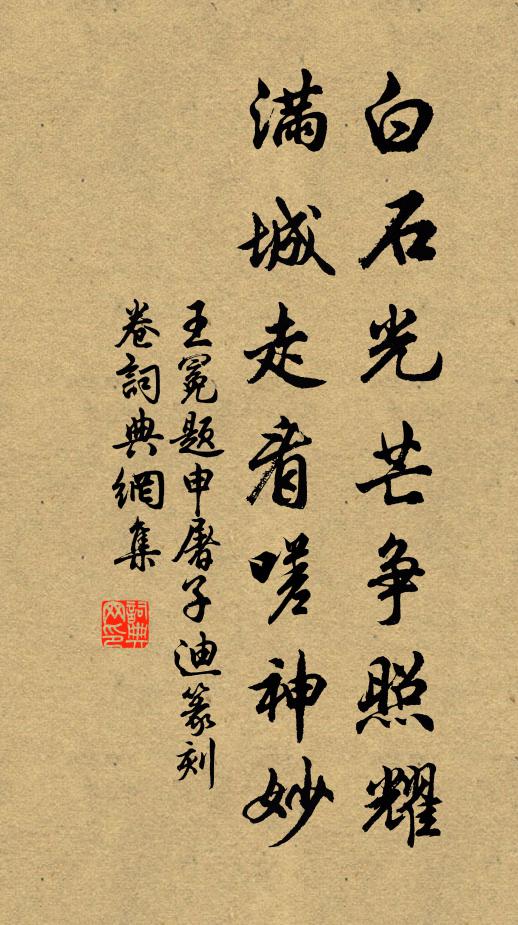 白石光芒争照耀
滿城走看嗟神妙
王冕題申屠子迪篆刻
卷詞典網集
詞典网印